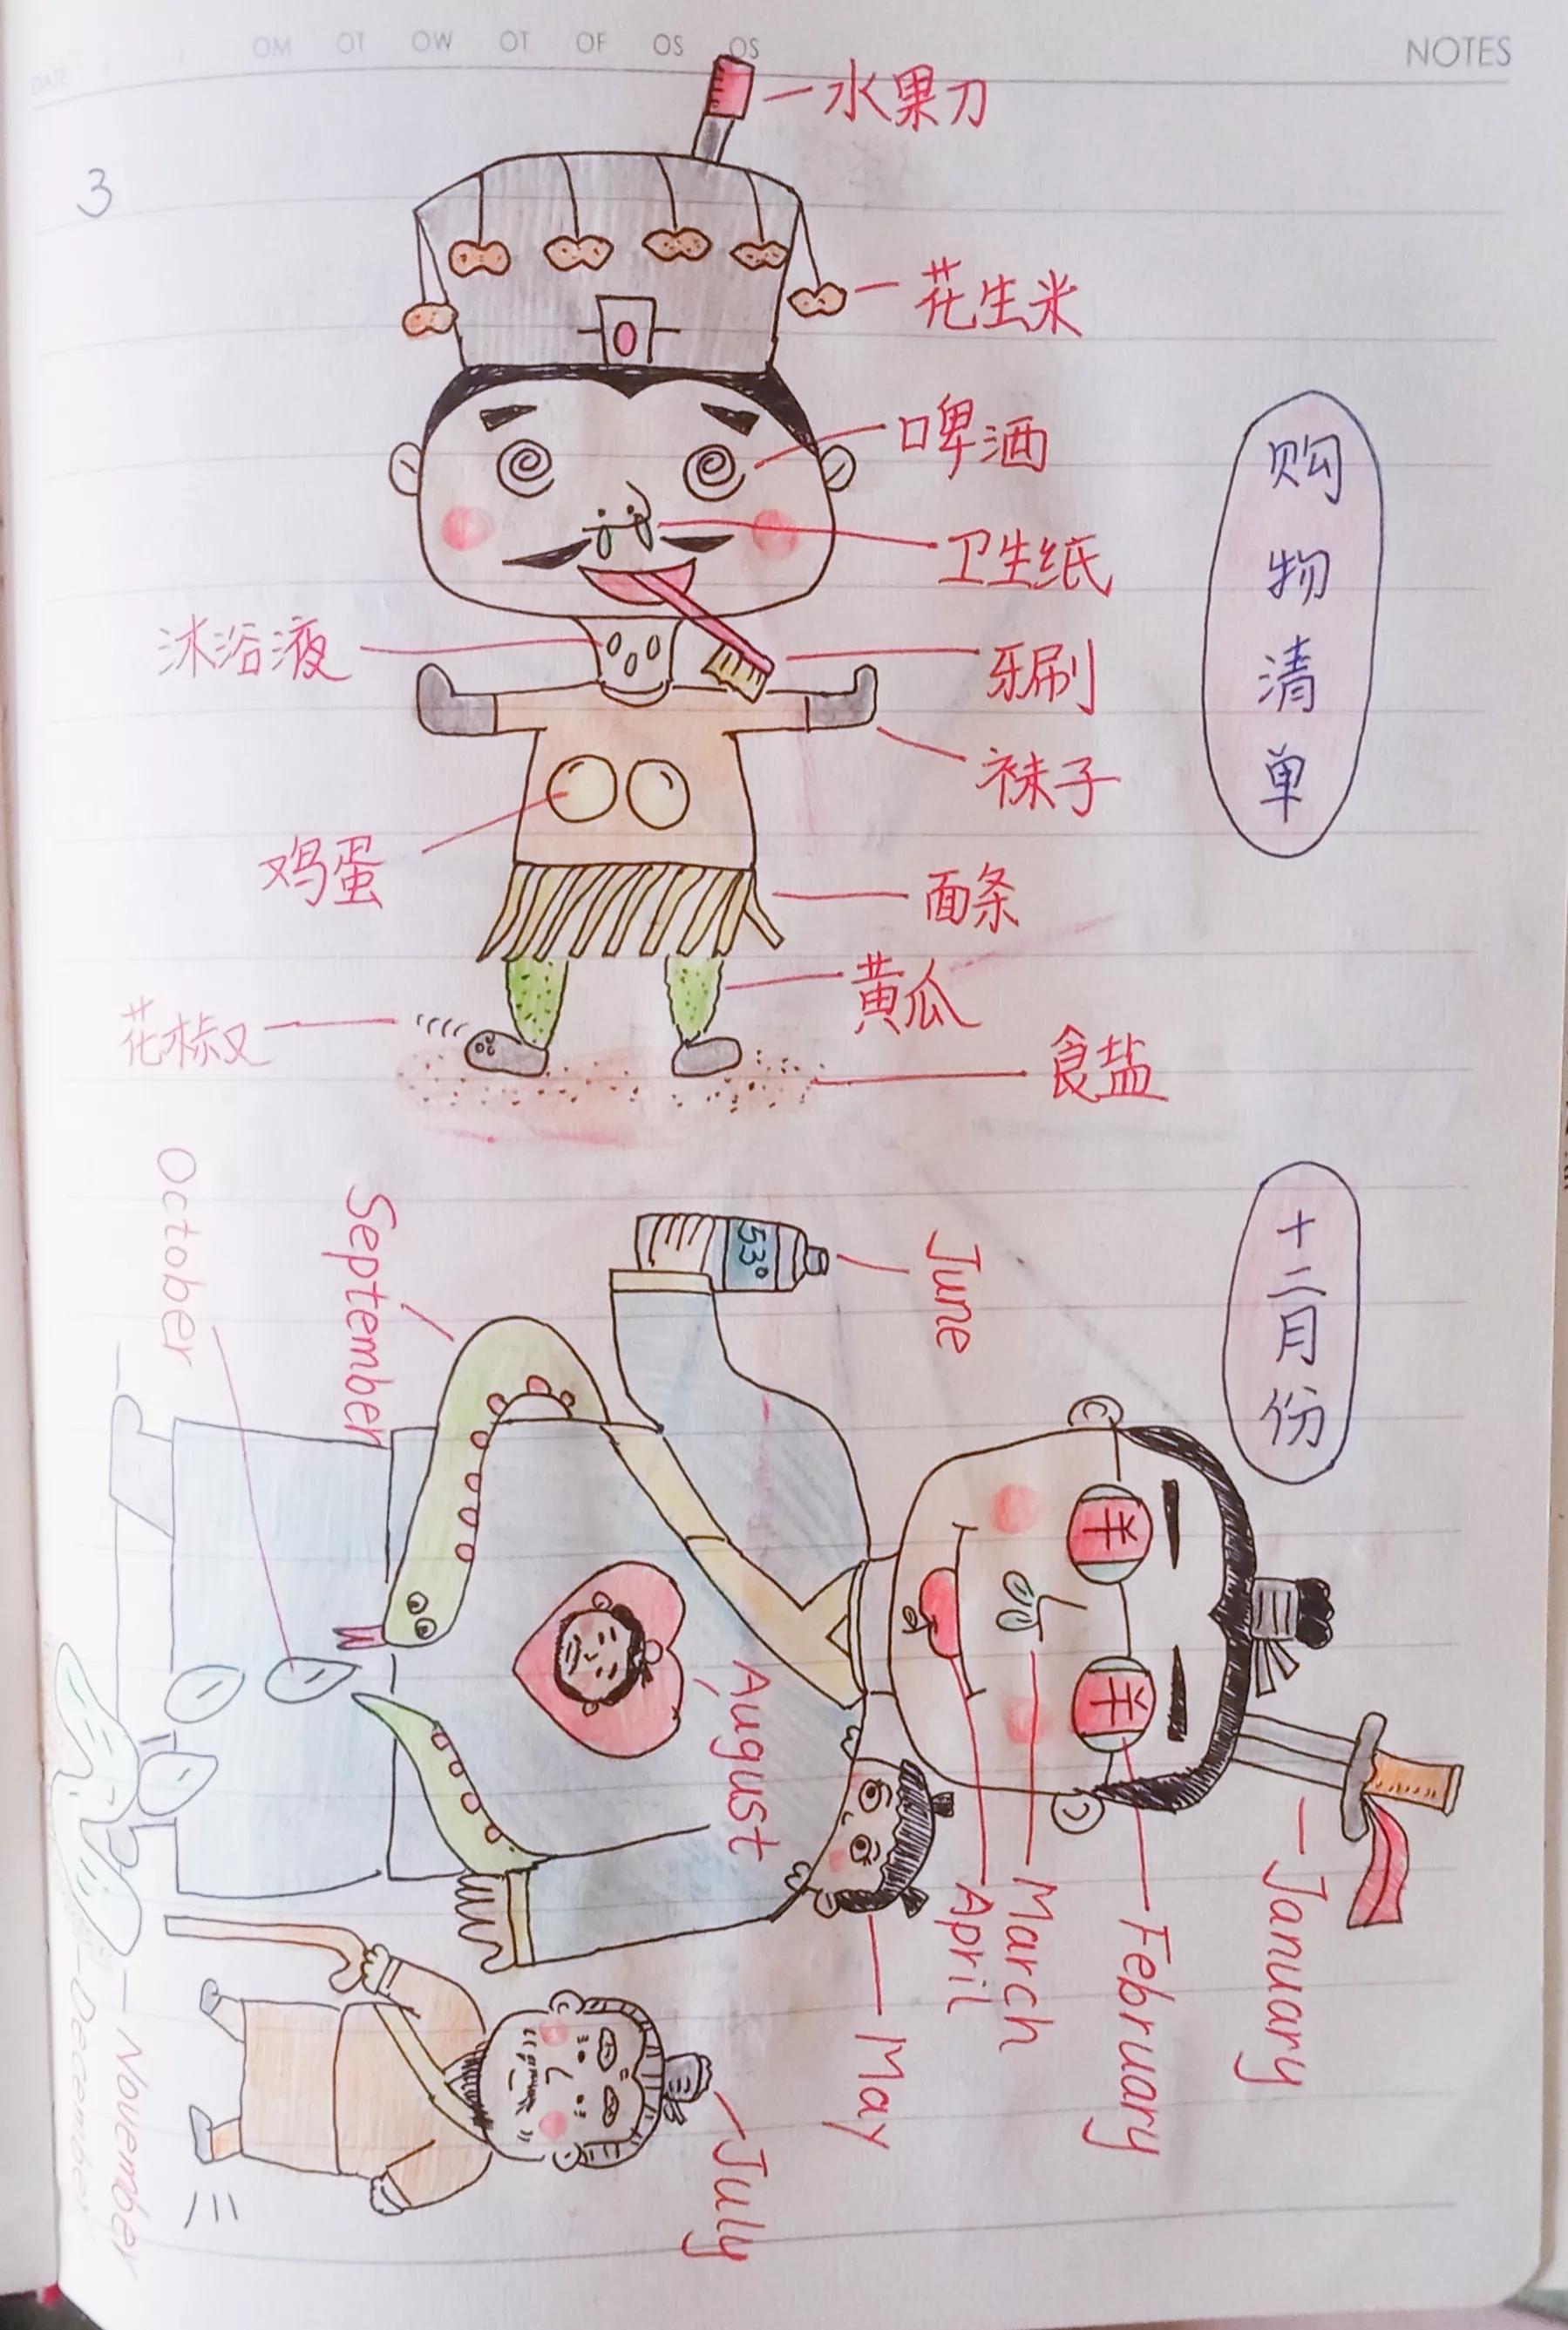 DATE
OM OT OW OT OF OS OS
NOTES
3
购物清单
水果刀
花生米
啤酒
卫生纸
沐浴液
牙刷
袜子
鸡蛋
面条
黄瓜
花椒
食盐
十二月份
January
February
羊 羊
March
April
May
June
53°
July
August
September
October
November
December